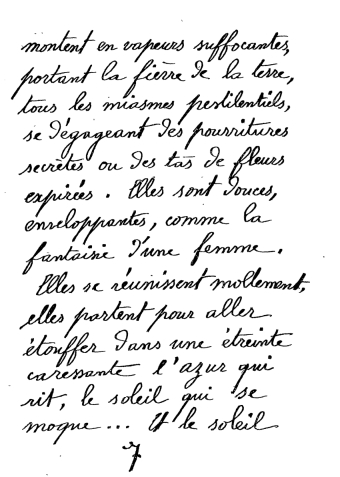 montent en vapeurs suffocantes,
portant la fièvre de la terre,
tous les miasmes pestilentiels,
se dégageant des pourritures
secrètes ou des tas de fleurs
expirées. Elles sont douces,
enveloppantes, comme la
fantaisie d'une femme.
Elles se réunissent mollement,
elles partent pour aller
étouffer dans une étreinte
caressante l'azur qui
rit, le soleil qui se
moque... Et le soleil
7